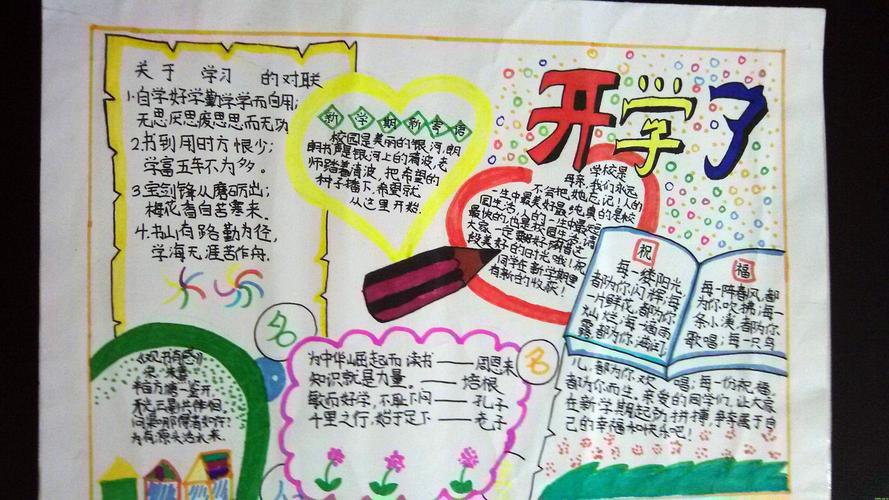 开学了
关于 学习 的对联
1.自学好学勤学学而自用;
无思厌思废思思而无功
2.书到用时方恨少;
学富五车不为多。
3.宝剑锋从磨砺出;
梅花香自苦寒来.
4.书山有路勤为径,
学海无涯苦作舟.
新学期新寄语
校园是美丽的银河,朗
朗书声是银河上的清波,老
师踏着清波,把希望的
种子播下,希望就
从这里开始.
学校是
母亲,我们永远
不会把她忘记!人的
一生中最美好最纯真的是校
园生活,人的一生中最短
最快的也是校园生活,请
大家一定要好好珍惜这
段美好的时光哦!祝
同学在新学期里
有新的收获!
祝
每一缕阳光
都为你闪祥;每
一片鲜花都为你
灿烂;每一滴雨
露都为你滋润
福
每一阵春风都
为你吹拂;每一
条小溪都为你
歌唱;每一只鸟
儿,都为你欢唱;每一份祝福
都为你而生.亲爱的同学们,让大家
在新学期起劲拼搏,争夺属于自
己的幸福和快乐吧!
《观书有感》
宋 朱熹
半亩方塘一鉴开
天光云影共徘徊.
问渠那得清如许?
为有源头活水来.
名
名
为中华崛起而读书——周恩来
知识就是力量。——培根
敏而好学,不耻下问——孔子
千里之行,始于足下——老子